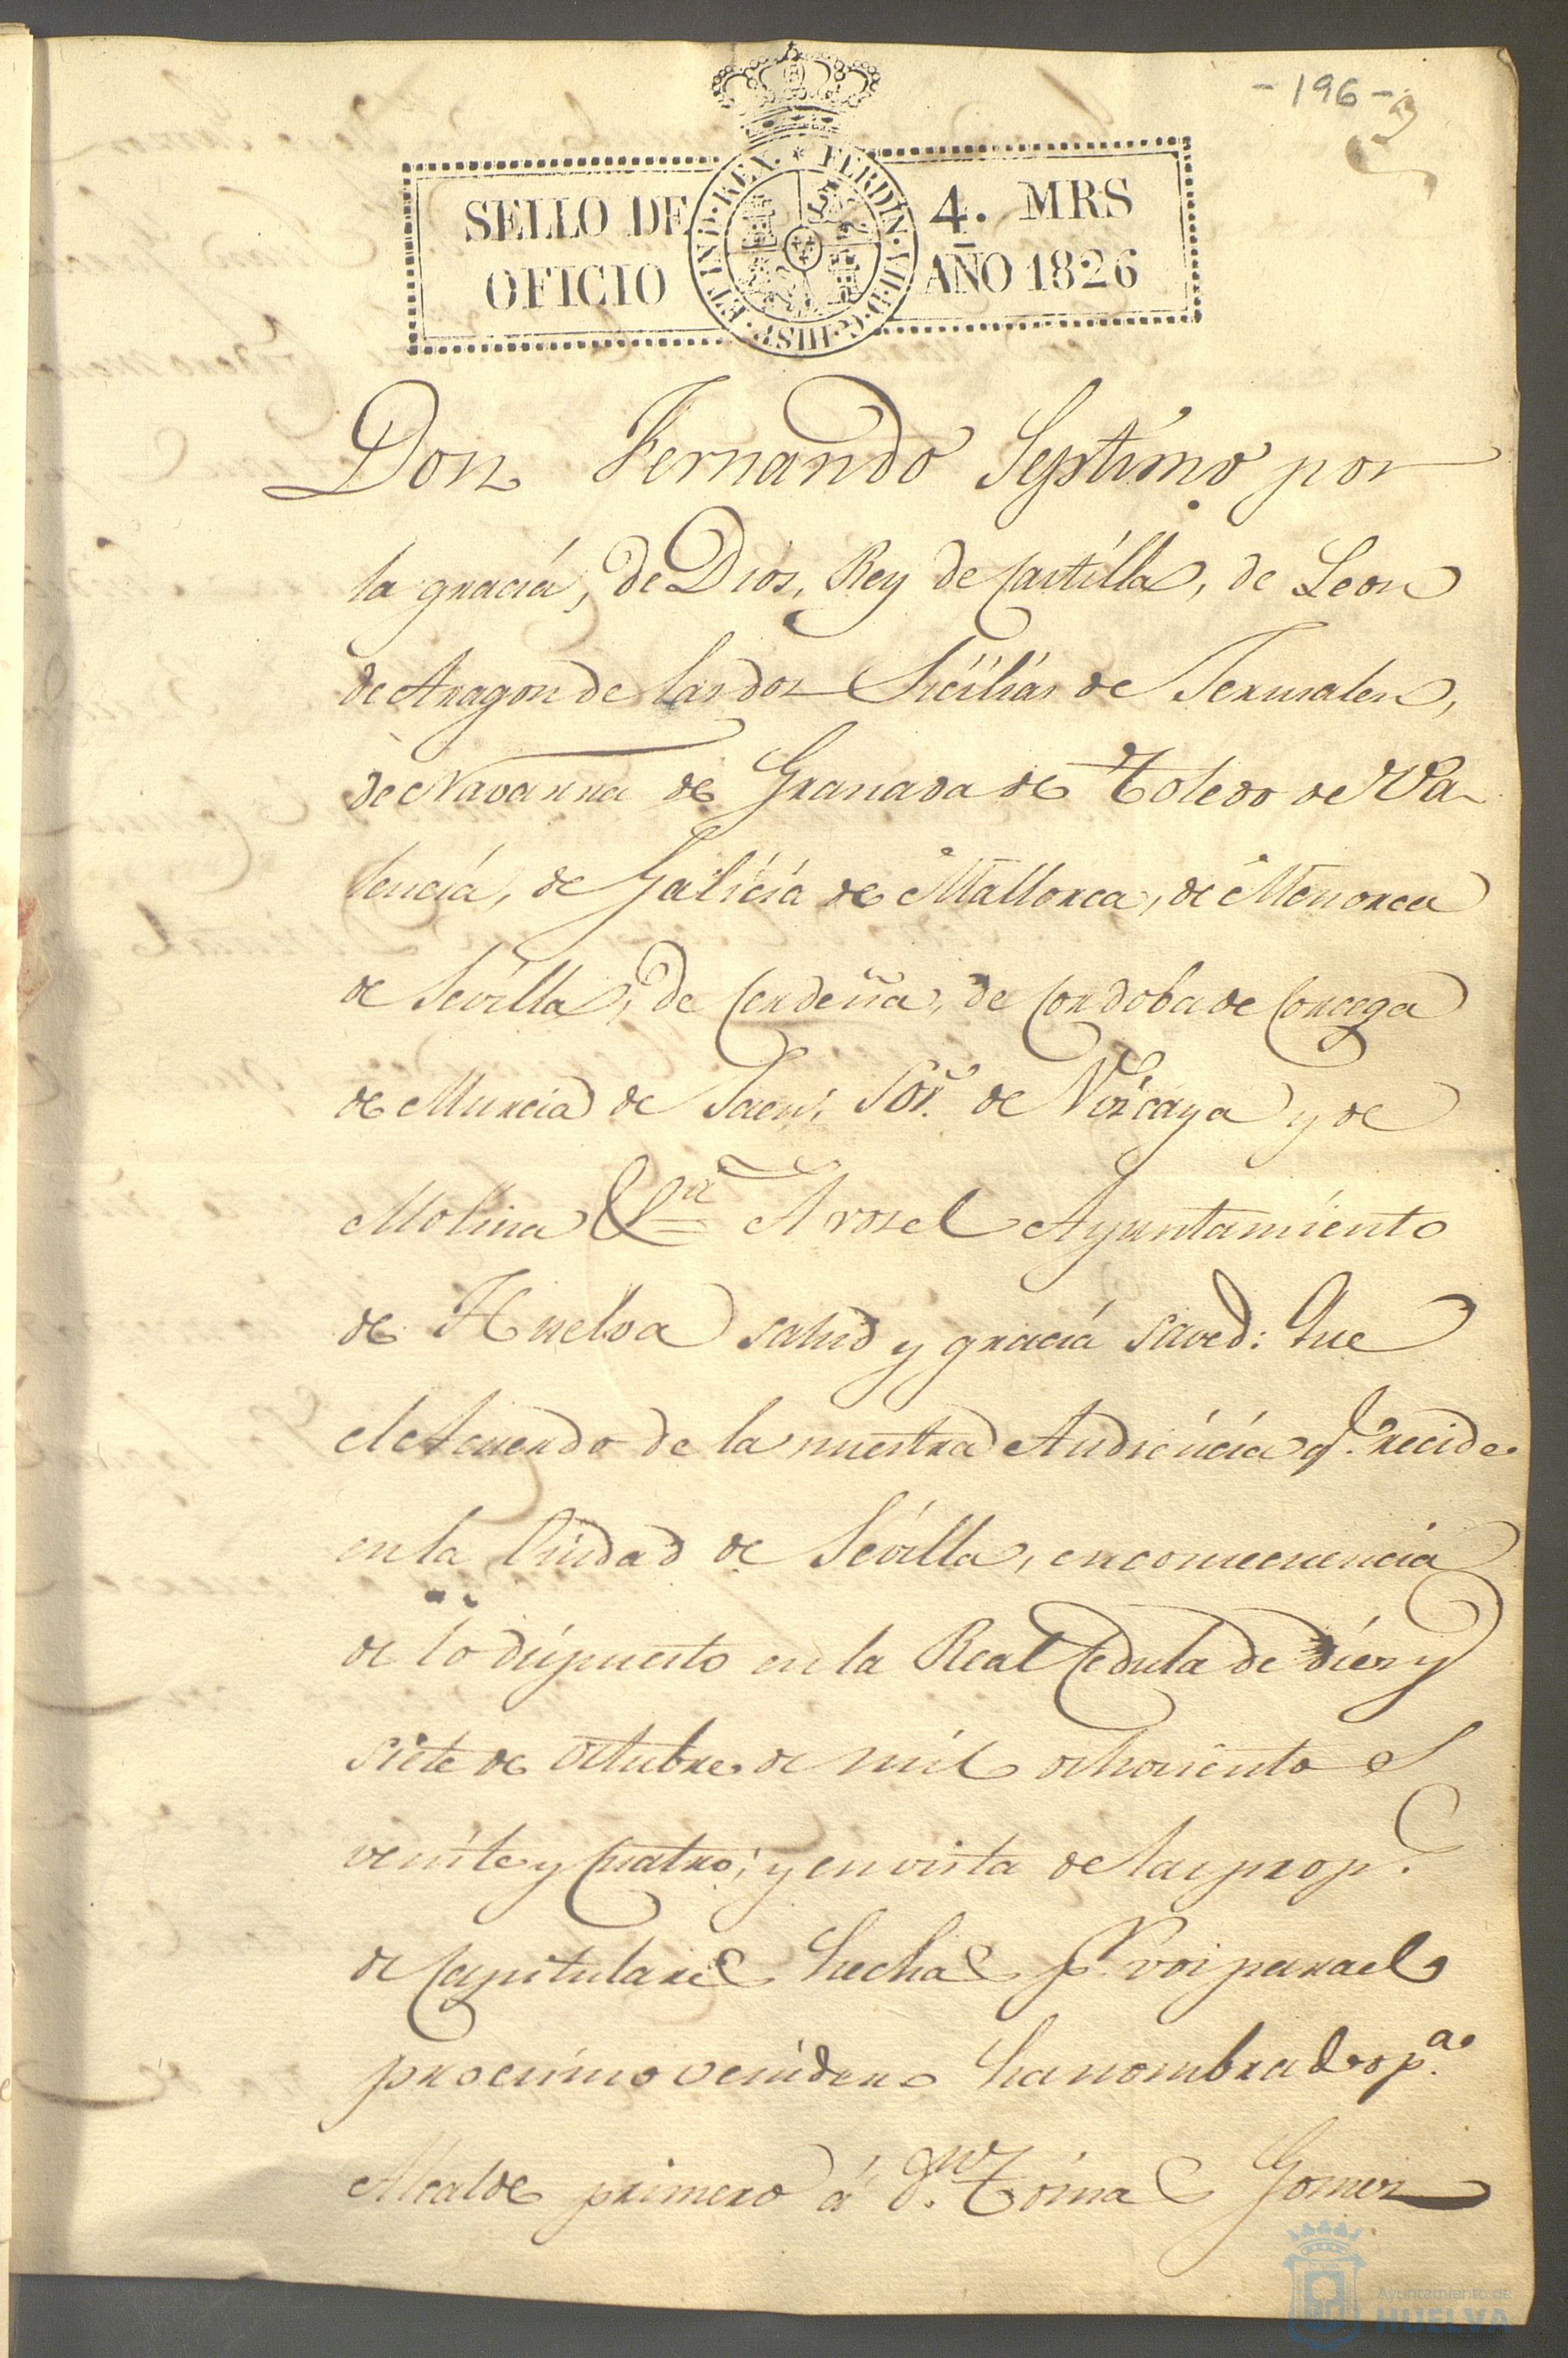 - 196 -
SELLO DE
OFICIO
4. MRS
AÑO 1826
FERDIN · VII · D · G · HISP · ET IND · REX ·
Don Fernando Septimo por
la gracia, de Dios, Rey de Castilla, de Leon
de Aragon de las dos Sicilias de Jerusalen,
de Navarra de Granada de Toledo de Va-
lencia, de Galicia de Mallorca, de Menorca
de Sevilla, de Cerdeña, de Cordoba de Corcega
de Murcia de Jaen, Sor. de Vizcaya y de
Molina &ra A vos el Ayuntamiento
de Huelva salud y gracia saved: Que
el Acuerdo de la nuestra Audiencia q.e recide
en la Ciudad de Sevilla, en consecuencia
de lo dispuesto en la Real Cedula de diez y
siete de octubre de mil ochociento s
veinte y Cuatro; y en vista de las prop.s
de Capitulares hechas p.r vos para el
procsimo venidero ha nombrado p.a
Alcalde primero á D.n Tomas Gomez
Ayuntamiento de
HUELVA